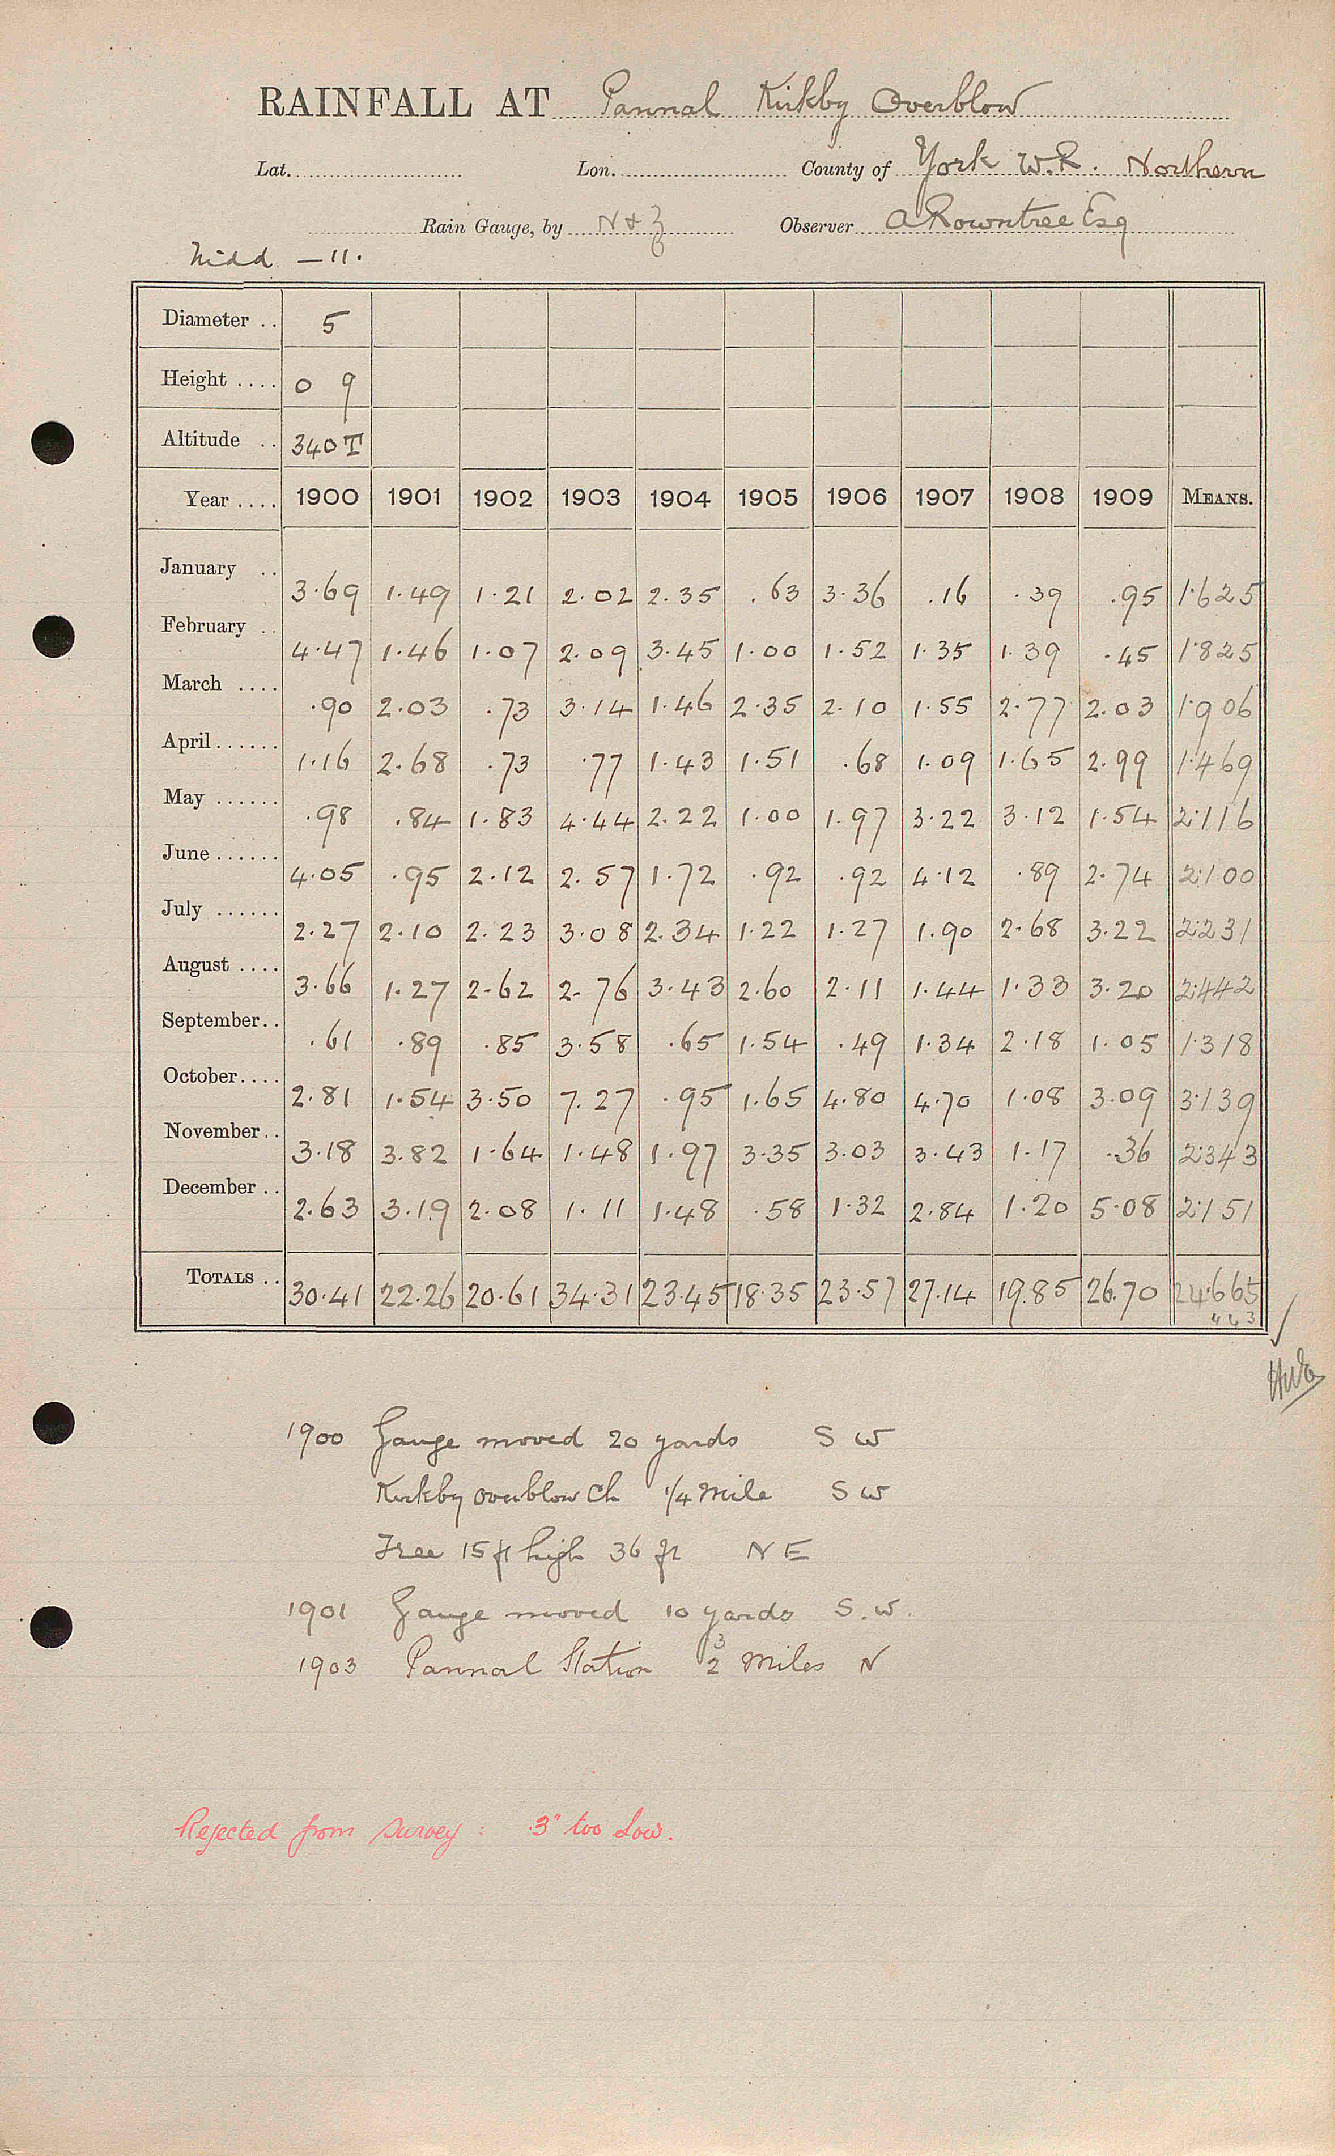 RAINFALL AT Pannal Kirkby Overblow
Lat. Lon. County of York W.R. Northern
Rain Gauge, by N & Z Observer A Rowntree Esq
Nidd — 11.
Diameter .. 5
Height .... 0 9
Altitude .. 340 T
Year .... 1900 1901 1902 1903 1904 1905 1906 1907 1908 1909 MEANS.
January .. 3.69 1.49 1.21 2.02 2.35 .63 3.36 .16 .39 .95 1.625
February .. 4.47 1.46 1.07 2.09 3.45 1.00 1.52 1.35 1.39 .45 1.825
March .... .90 2.03 .73 3.14 1.46 2.35 2.10 1.55 2.77 2.03 1.906
April...... 1.16 2.68 .73 .77 1.43 1.51 .68 1.09 1.65 2.99 1.469
May ...... .98 .84 1.83 4.44 2.22 1.00 1.97 3.22 3.12 1.54 2.116
June...... 4.05 .95 2.12 2.57 1.72 .92 .92 4.12 .89 2.74 2.100
July ...... 2.27 2.10 2.23 3.08 2.34 1.22 1.27 1.90 2.68 3.22 2.231
August .... 3.66 1.27 2.62 2.76 3.43 2.60 2.11 1.44 1.33 3.20 2.442
September.. .61 .89 .85 3.58 .65 1.54 .49 1.34 2.18 1.05 1.318
October.... 2.81 1.54 3.50 7.27 .95 1.65 4.80 4.70 1.08 3.09 3.139
November.. 3.18 3.82 1.64 1.48 1.97 3.35 3.03 3.43 1.17 .36 2.343
December .. 2.63 3.19 2.08 1.11 1.48 .58 1.32 2.84 1.20 5.08 2.151
TOTALS .. 30.41 22.26 20.61 34.31 23.45 18.35 23.57 27.14 19.85 26.70 24.665
1900 Gauge moved 20 yards S W
Kirkby Overblow Ch 1/4 Mile S W
Tree 15 ft high 36 ft N E
1901 Gauge moved 10 yards S.W.
1903 Pannal Station 2 3 Miles N
Rejected from Survey: 3" too low.